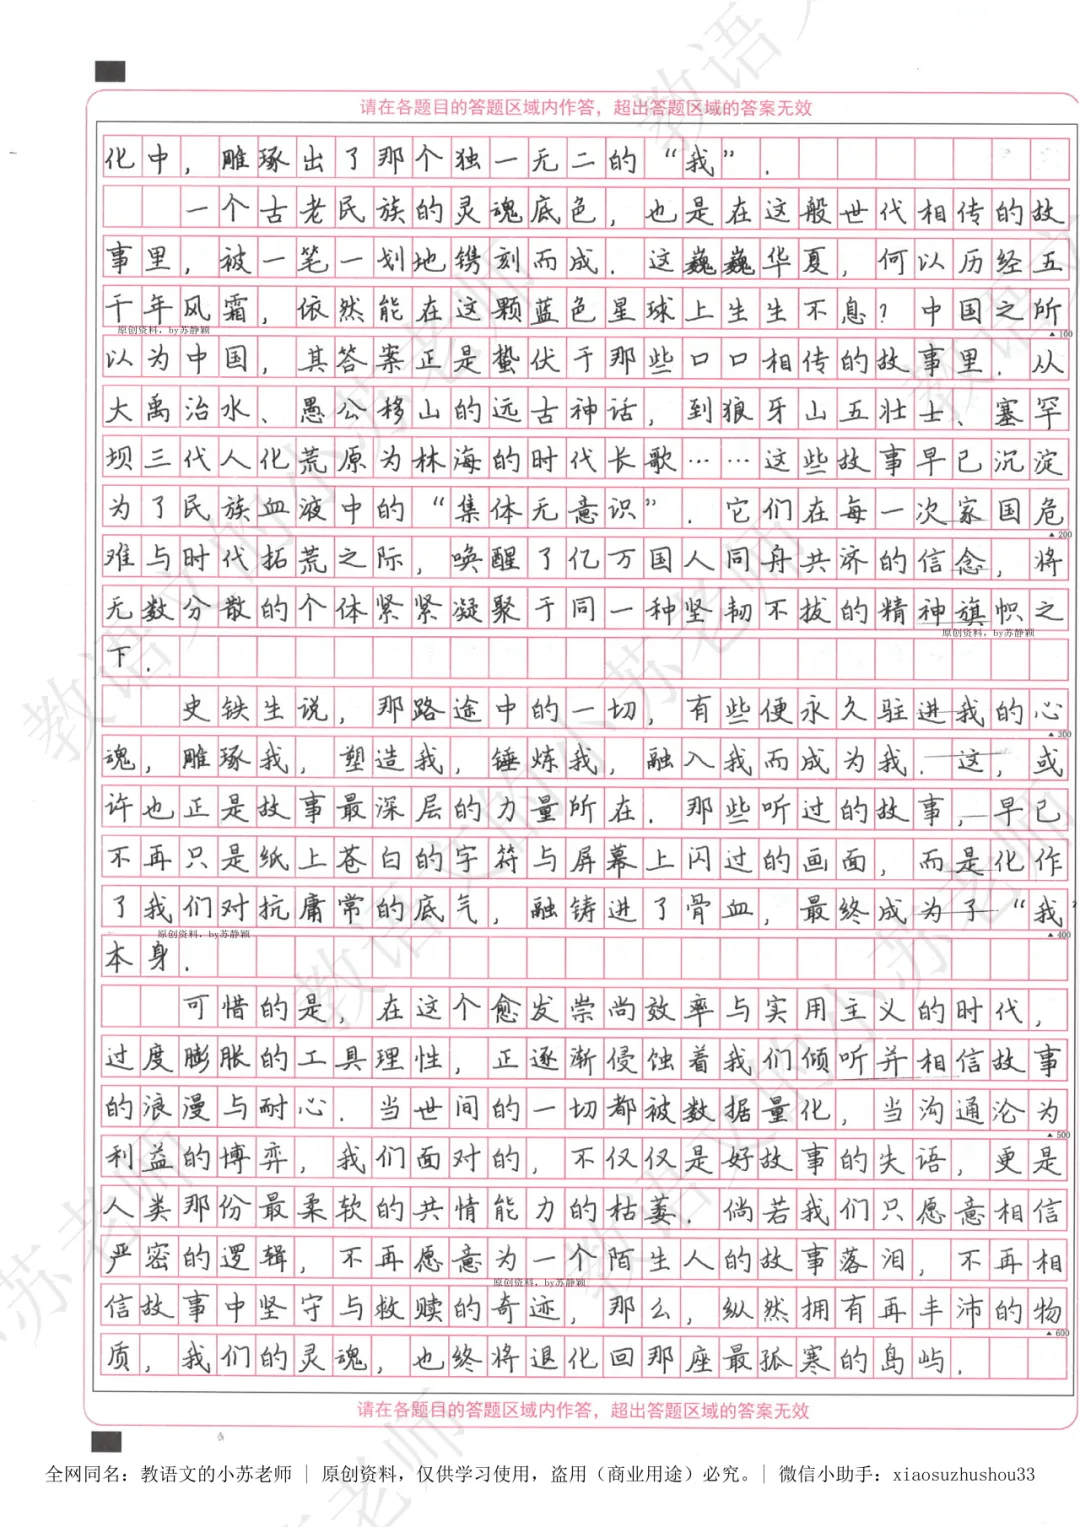 请在各题目的答题区域内作答，超出答题区域的答案无效
化中，雕琢出了那个独一无二的“我”.
一个古老民族的灵魂底色，也是在这般世代相传的故
事里，被一笔一划地镌刻而成.这巍巍华夏，何以历经五
千年风霜，依然能在这颗蓝色星球上生生不息？中国之所
原创资料，by苏静颖
▲100
以为中国，其答案正是蛰伏于那些口口相传的故事里.从
大禹治水、愚公移山的远古神话，到狼牙山五壮士、塞罕
坝三代人化荒原为林海的时代长歌……这些故事早已沉淀
为了民族血液中的“集体无意识”.它们在每一次家国危
▲200
难与时代拓荒之际，唤醒了亿万国人同舟共济的信念，将
无数分散的个体紧紧凝聚于同一种坚韧不拔的精神旗帜之
原创资料，by苏静颖
下.
史铁生说，那路途中的一切，有些便永久驻进我的心
▲300
魂，雕琢我，塑造我，锤炼我，融入我而成为我.这，或
许也正是故事最深层的力量所在.那些听过的故事，早已
不再只是纸上苍白的字符与屏幕上闪过的画面，而是化作
了我们对抗庸常的底气，融铸进了骨血，最终成为了“我”
原创资料，by苏静颖
▲400
本身.
可惜的是，在这个愈发崇尚效率与实用主义的时代，
过度膨胀的工具理性，正逐渐侵蚀着我们倾听并相信故事
的浪漫与耐心.当世间的一切都被数据量化，当沟通沦为
▲500
利益的博弈，我们面对的，不仅仅是好故事的失语，更是
人类那份最柔软的共情能力的枯萎.倘若我们只愿意相信
严密的逻辑，不再愿意为一个陌生人的故事落泪，不再相
原创资料，by苏静颖
信故事中坚守与救赎的奇迹，那么，纵然拥有再丰沛的物
▲600
质，我们的灵魂，也终将退化回那座最孤寒的岛屿.
请在各题目的答题区域内作答，超出答题区域的答案无效
全网同名：教语文的小苏老师 | 原创资料，仅供学习使用，盗用（商业用途）必究。| 微信小助手：xiaosuzhushou33
教语文的小苏老师